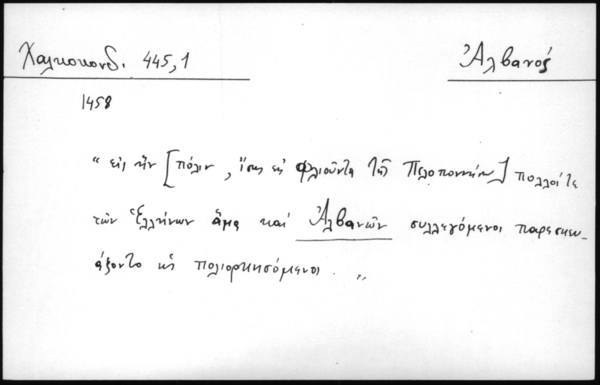 Χαλκοκονδ. 445,1
Ἀλβανός
1458
“ εἰς ἣν [πόλιν, ἴσως εἰς Φλιοῦντα τῆς Πελοποννήσου] πολλοί τε
τῶν Ἑλλήνων ἅμα καὶ Ἀλβανῶν συλλεγόμενοι παρεσκευ-
άζοντο ὡς πολιορκησόμενοι. „